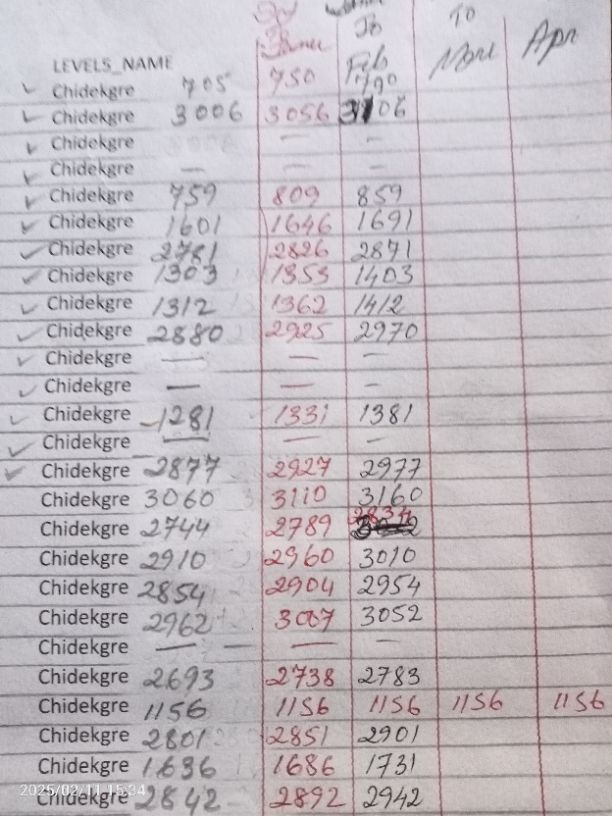 To To
Feb Mar Apr
LEVEL5_NAME
✓ Chidekgre 705 750 790
✓ Chidekgre 3006 3056 3106
✓ Chidekgre — —
✓ Chidekgre — — —
✓ Chidekgre 759 809 859
✓ Chidekgre 1601 1646 1691
✓ Chidekgre 2781 2826 2871
✓ Chidekgre 1303 1353 1403
✓ Chidekgre 1312 1362 1412
✓ Chidekgre 2880 2925 2970
✓ Chidekgre — — —
✓ Chidekgre — — —
✓ Chidekgre 1281 1331 1381
✓ Chidekgre — — —
✓ Chidekgre 2877 2927 2977
Chidekgre 3060 3110 3160
Chidekgre 2744 2789 2834
Chidekgre 2910 2960 3010
Chidekgre 2854 2904 2954
Chidekgre 2962 3007 3052
Chidekgre — — — —
Chidekgre 2693 2738 2783
Chidekgre 1156 1156 1156 1156 1156
Chidekgre 2801 2851 2901
Chidekgre 1636 1686 1731
2025/02/11 15:34
Chidekgre 2842 2892 2942